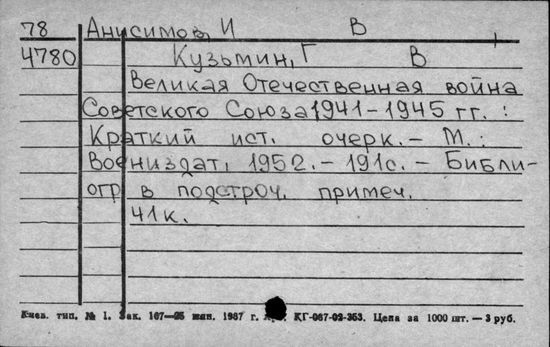 78 Анисимов, И В
4780 Кузьмин, Г В
Великая Отечественная война
Советского Союза 1941-1945 гг. :
Краткий ист. очерк. - М. :
Воениздат, 1952. - 191с. - Библи-
огр в подстроч. примеч.
41к.
Киев. тип. № 1. Зак. 167—25 янв. 1987 г. КГ-067-02-353. Цена за 1000 шт. — 3 руб.